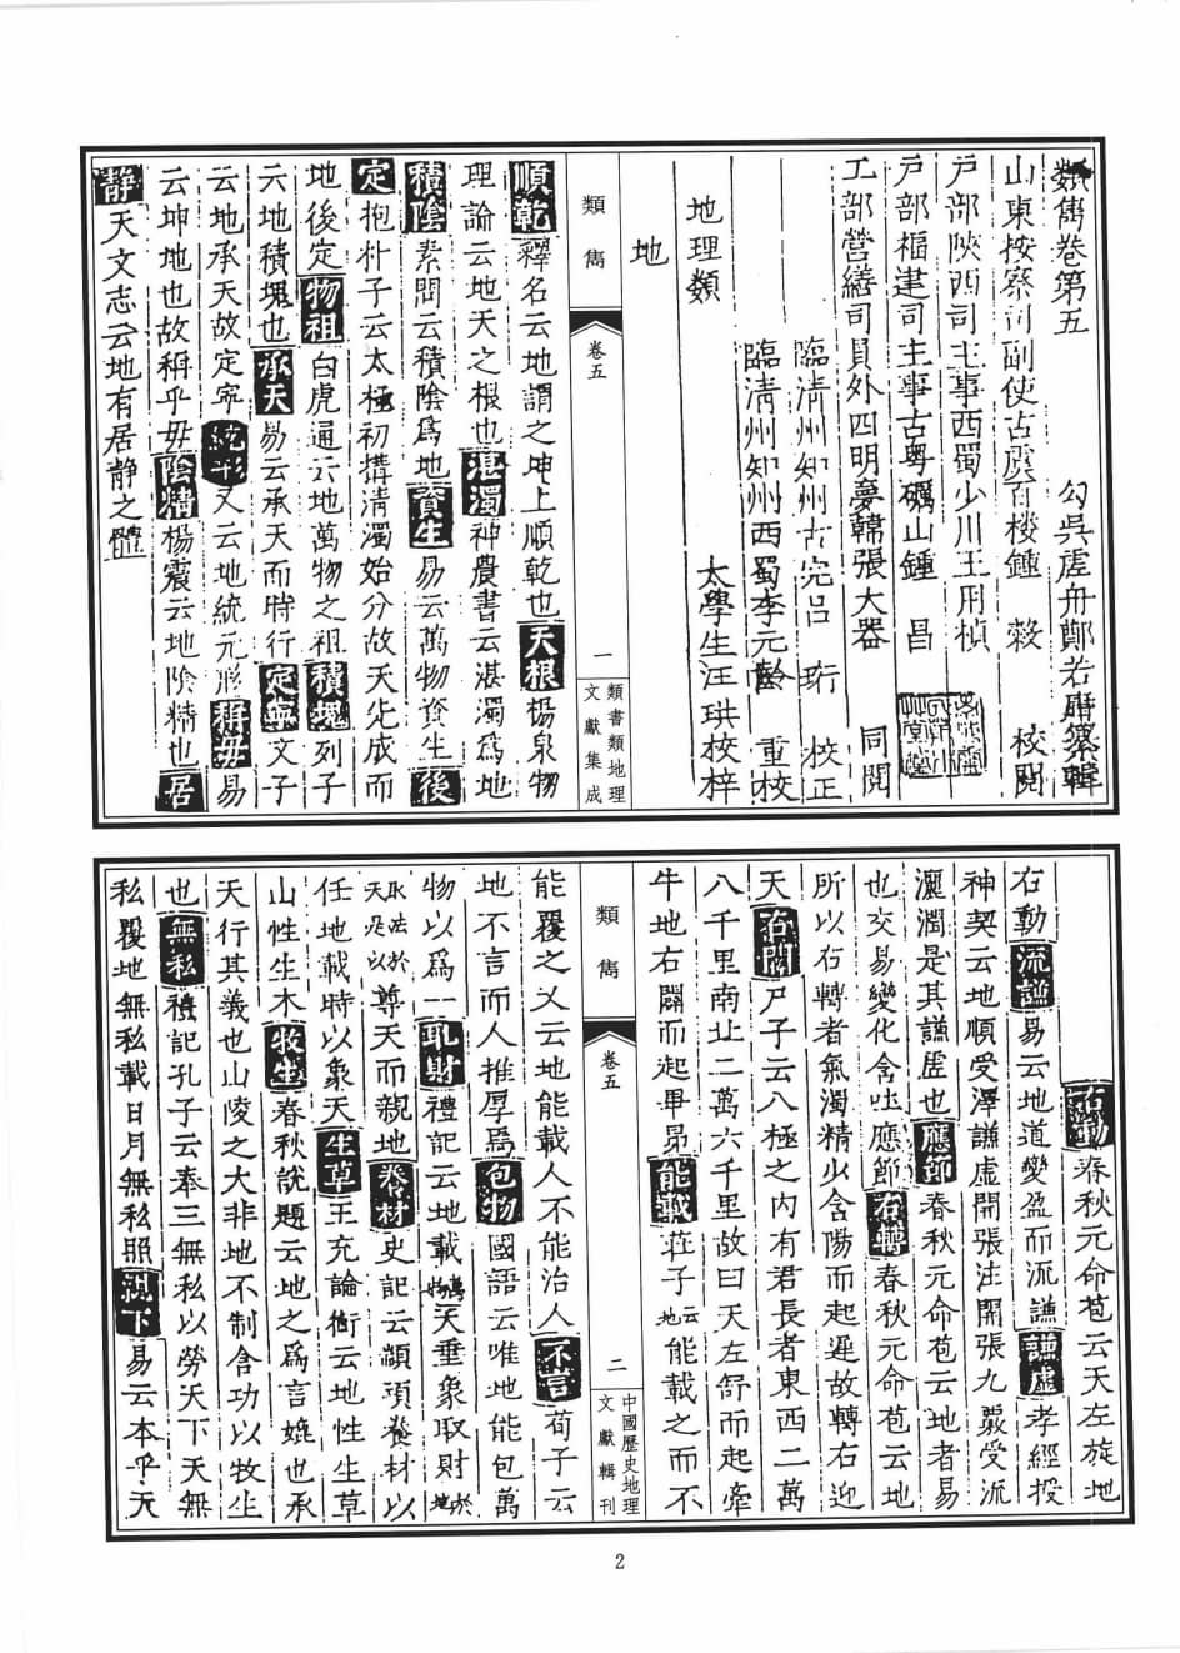 類雋卷第五
勾吳虛舟鄭若庸纂輯
山東按察司副使古虞百樓鍾 穀 校閱
戶部陝西司主事西蜀少川王用楨
戶部福建司主事古粵礪山鍾 昌
工部營繕司員外四明夢韓張大器 同閱
臨清州知州古完呂 珩 校正
臨清州知州西蜀李元齡 重校
太學生汪珙校梓
地理類
地
類雋
卷五
一
類書類地理
文獻集成
順乾釋名云地謂之坤上順乾也天根楊泉物
理論云地天之根也湛濁神農書云湛濁為地
積陰素問云積陰為地資生易云萬物資生後
定抱朴子云太極初搆清濁始分故天先成而
地後定物祖白虎通云地萬物之祖積塊列子
云地積塊也承天易云承天而時行定寧文子
云地承天故定寧統形又云地統元形稱母易
云坤地也故稱乎母陰精楊震云地陰精也居
靜天文志云地有居靜之體
右動春秋元命苞云天左旋地
右動流謙易云地道變盈而流謙謙虛孝經援
神契云地順受澤謙虛開張注開張九竅受流
灑潤是其謙虛也應節春秋元命苞云地者易
也交易變化含吐應節右轉春秋元命苞云地
所以右轉者氣濁精少含陽而起遲故轉右迎
天右闢尸子云八極之內有君長者東西二萬
八千里南北二萬六千里故曰天左舒而起牽
牛地右闢而起畢昴能載莊子云地能載之而不
類雋
卷五
二
中國歷史地理
文獻輯刊
能覆之又云地能載人不能治人不言荀子云
地不言而人推厚焉包物國語云唯地能包萬
物以為一取財禮記云地載萬物天垂象取財於地
取法於天是以尊天而親地養材史記云顓頊養材以
任地載時以象天生草王充論衡云地性生草
山性生木牧生春秋說題云地之為言媲也承
天行其義也山陵之大非地不制含功以牧生
也無私禮記孔子云奉三無私以勞天下天無
私覆地無私載日月無私照親下易云本乎天
2